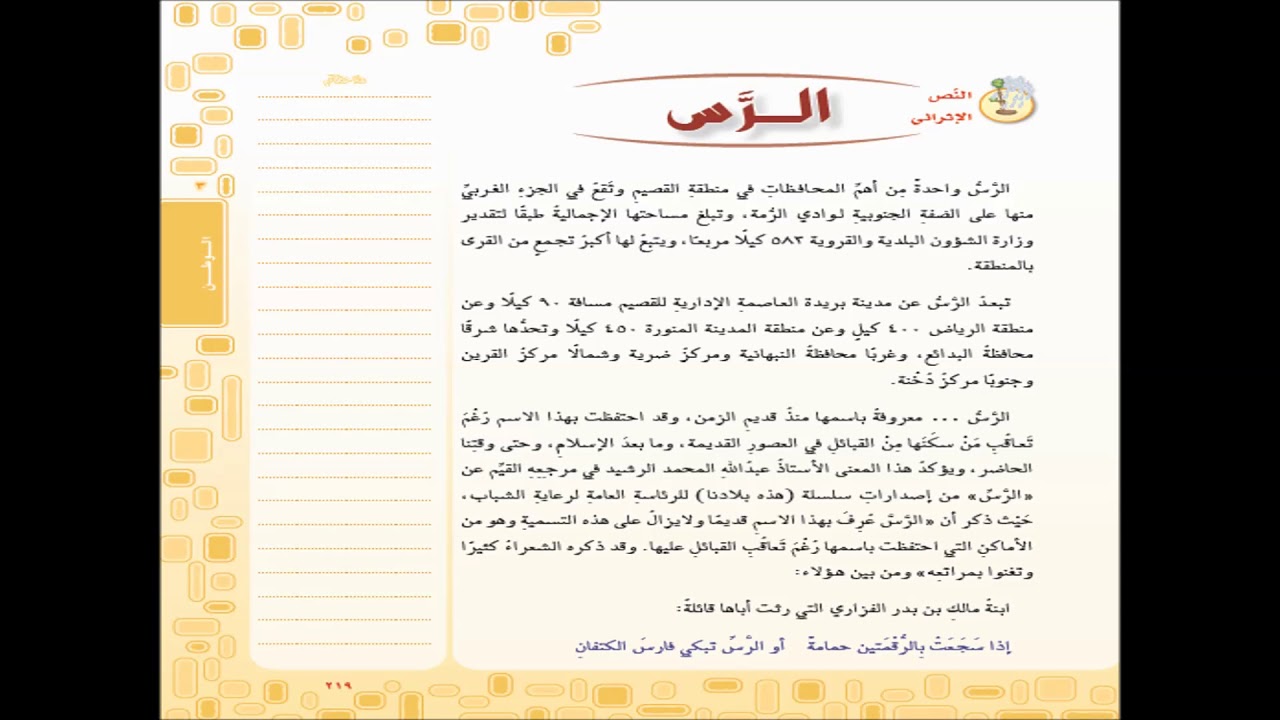 النَّص
الإثرائي
الـرَّس
ملاحظاتي
الرَّسُّ واحدةٌ مِن أهمِّ المحافظاتِ في منطقةِ القصيمِ وتَقعُ في الجزءِ الغربيِّ
منها على الضفةِ الجنوبيةِ لوادي الرُّمة، وتبلغ مساحتها الإجماليةُ طبقًا لتقدير
وزارة الشؤون البلدية والقروية ٥٨٣ كيلًا مربعًا، ويتبعُ لها أكبرُ تجمعٍ من القرى
بالمنطقة.
تبعدُ الرَّسُّ عن مدينة بريدة العاصمةِ الإداريةِ للقصيم مسافة ٩٠ كيلًا وعن
منطقة الرياض ٤٠٠ كيلٍ وعن منطقة المدينة المنورة ٤٥٠ كيلًا وتحدُّها شرقًا
محافظةُ البدائع، وغربًا محافظةُ النبهانية ومركزُ ضرية وشمالًا مركزُ القرين
وجنوبًا مركزُ دُخْنة.
الرَّسُّ ... معروفةٌ باسمها منذُ قديمِ الزمن، وقد احتفظت بهذا الاسم رَغْمَ
تَعاقُبِ مَنْ سكَنَها مِنْ القبائلِ في العصورِ القديمة، وما بعدَ الإسلامِ، وحتى وقتِنا
الحاضر، ويؤكدُ هذا المعنى الأستاذُ عبدُاللهِ المحمد الرشيد في مرجعِهِ القيِّم عن
«الرَّسِّ» من إصداراتِ سلسلة (هذه بلادنا) للرئاسةِ العامةِ لرعايةِ الشباب،
حَيْث ذكر أن «الرَّسَّ عُرِفَ بهذا الاسمِ قديمًا ولايزالُ على هذه التسميةِ وهو من
الأماكنِ التي احتفظت باسمها رَغْمَ تَعاقُبِ القبائلِ عليها. وقد ذكره الشعراءُ كثيرًا
وتغنوا بمراتعِه» ومن بين هؤلاء:
ابنةُ مالكِ بن بدر الفزاري التي رثت أباها قائلةً:
إذا سَجَعَتْ بِالرَّقْمَتَين حمامةٌ أو الرَّسِّ تبكي فارسَ الكتفانِ
٣
الـوطـن
٢١٩